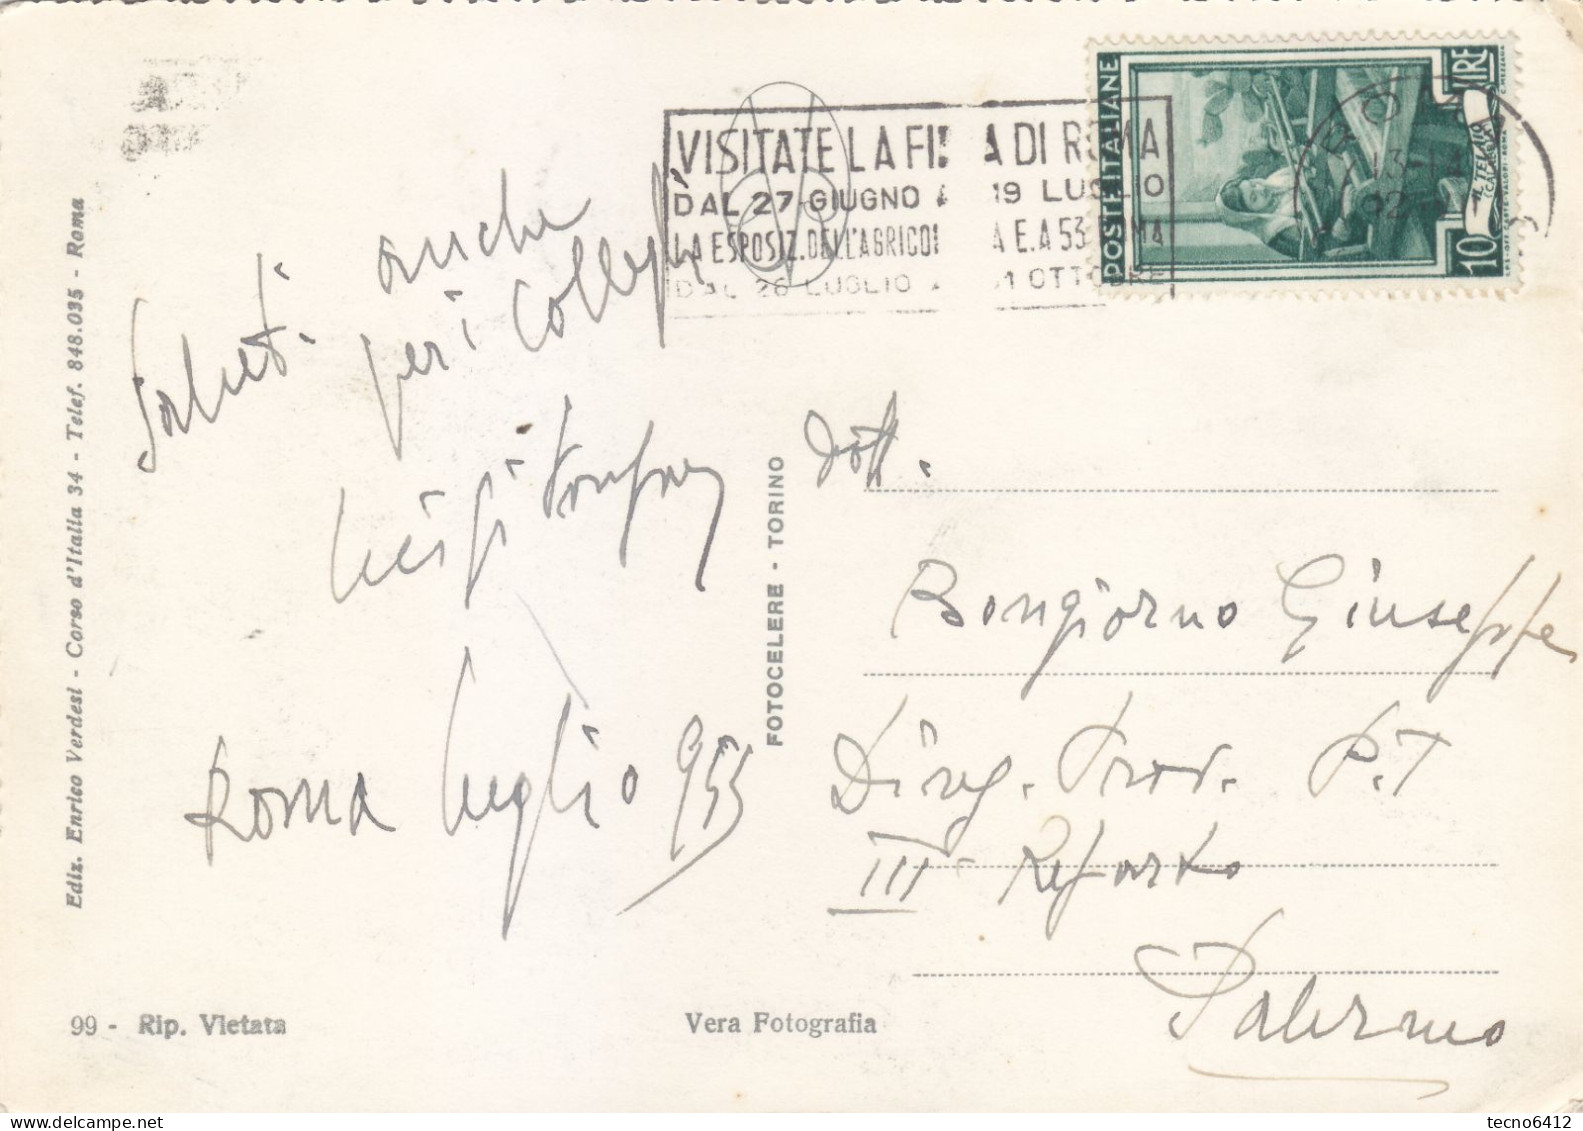 VISITATE LA FI A DI ROMA
DAL 27 GIUGNO A 19 LUGLIO
LA ESPOSIZ. DELL'AGRICOL A E.A 53 ROMA
DAL 26 LUGLIO A 31 OTTOBRE
POSTE ITALIANE
10 LIRE
IL TELAIO
(CALABRIA)
13-14
Saluti anche
per i Colleghi
Luigi
Roma luglio 953
Ediz. Enrico Verdesi - Corso d'Italia 34 - Telef. 848.035 - Roma
FOTOCELERE - TORINO
dott.
Bongiorno Giuseppe
Direz. Prov. P.T
III Reparto
Palermo
99 - Rip. Vietata
Vera Fotografia
tecno6412